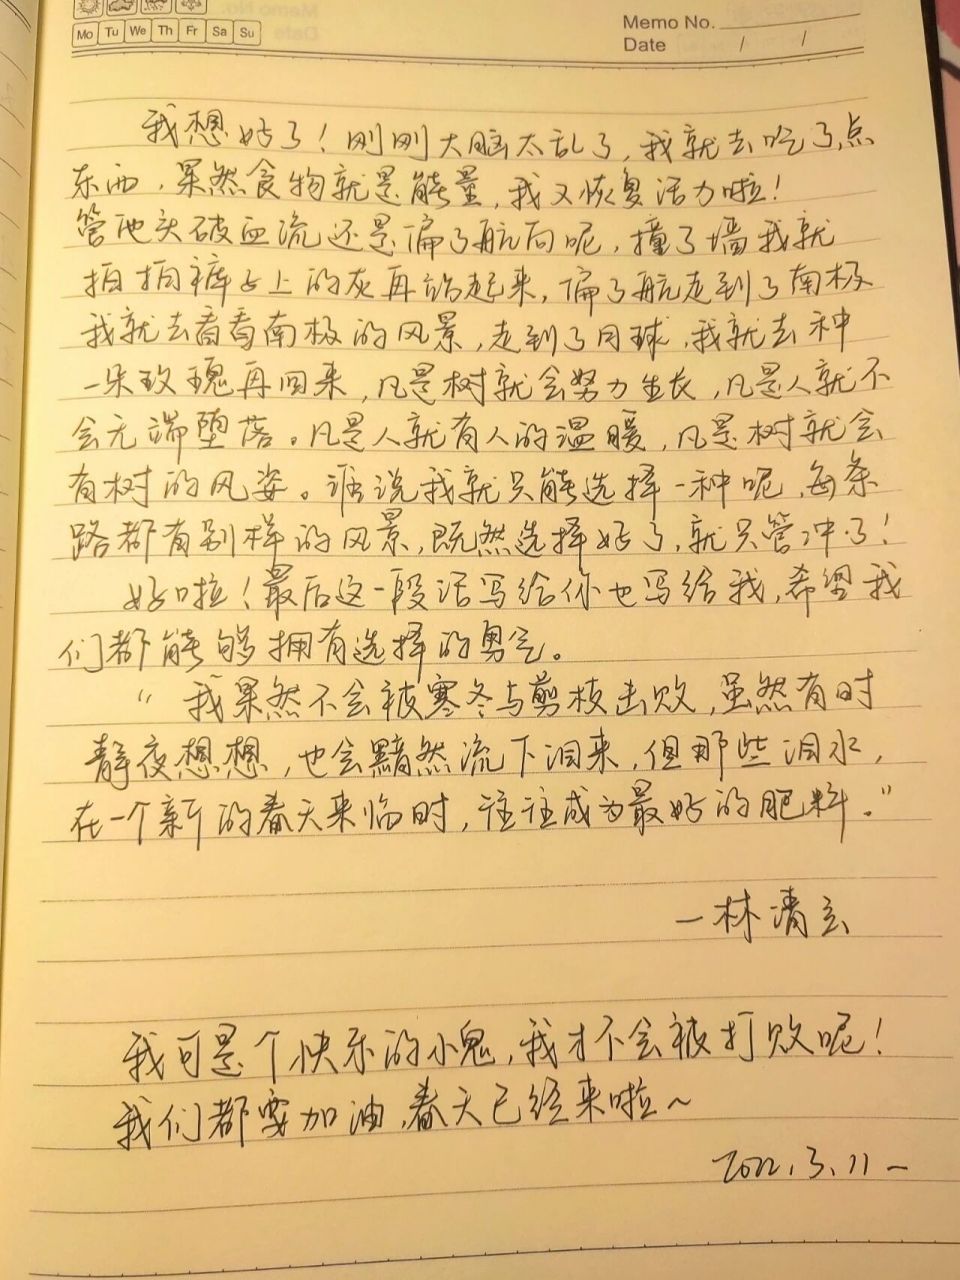 Mo Tu We Th Fr Sa Su
Memo No.
Date / /
我想好了！刚刚大脑太乱了，我就去吃了点
东西，果然食物就是能量，我又恢复活力啦！
管他头破血流还是偏了航向呢，撞了墙我就
拍拍裤子上的灰再站起来，偏了航走到了南极
我就去看看南极的风景，走到了月球，我就去种
一朵玫瑰再回来，凡是树就会努力生长，凡是人就不
会无端堕落。凡是人就有人的温暖，凡是树就会
有树的风姿。谁说我就只能选择一种呢，每条
路都有别样的风景，既然选择好了，就只管冲了！
好啦！最后这一段话写给你也写给我，希望我
们都能够拥有选择的勇气。
“我果然不会被寒冬与剪枝击败，虽然有时
静夜想想，也会黯然流下泪来，但那些泪水，
在一个新的春天来临时，往往成为最好的肥料。”
—林清玄
我可是个快乐的小鬼，我才不会被打败呢！
我们都要加油，春天已经来啦～
2022.3.11—